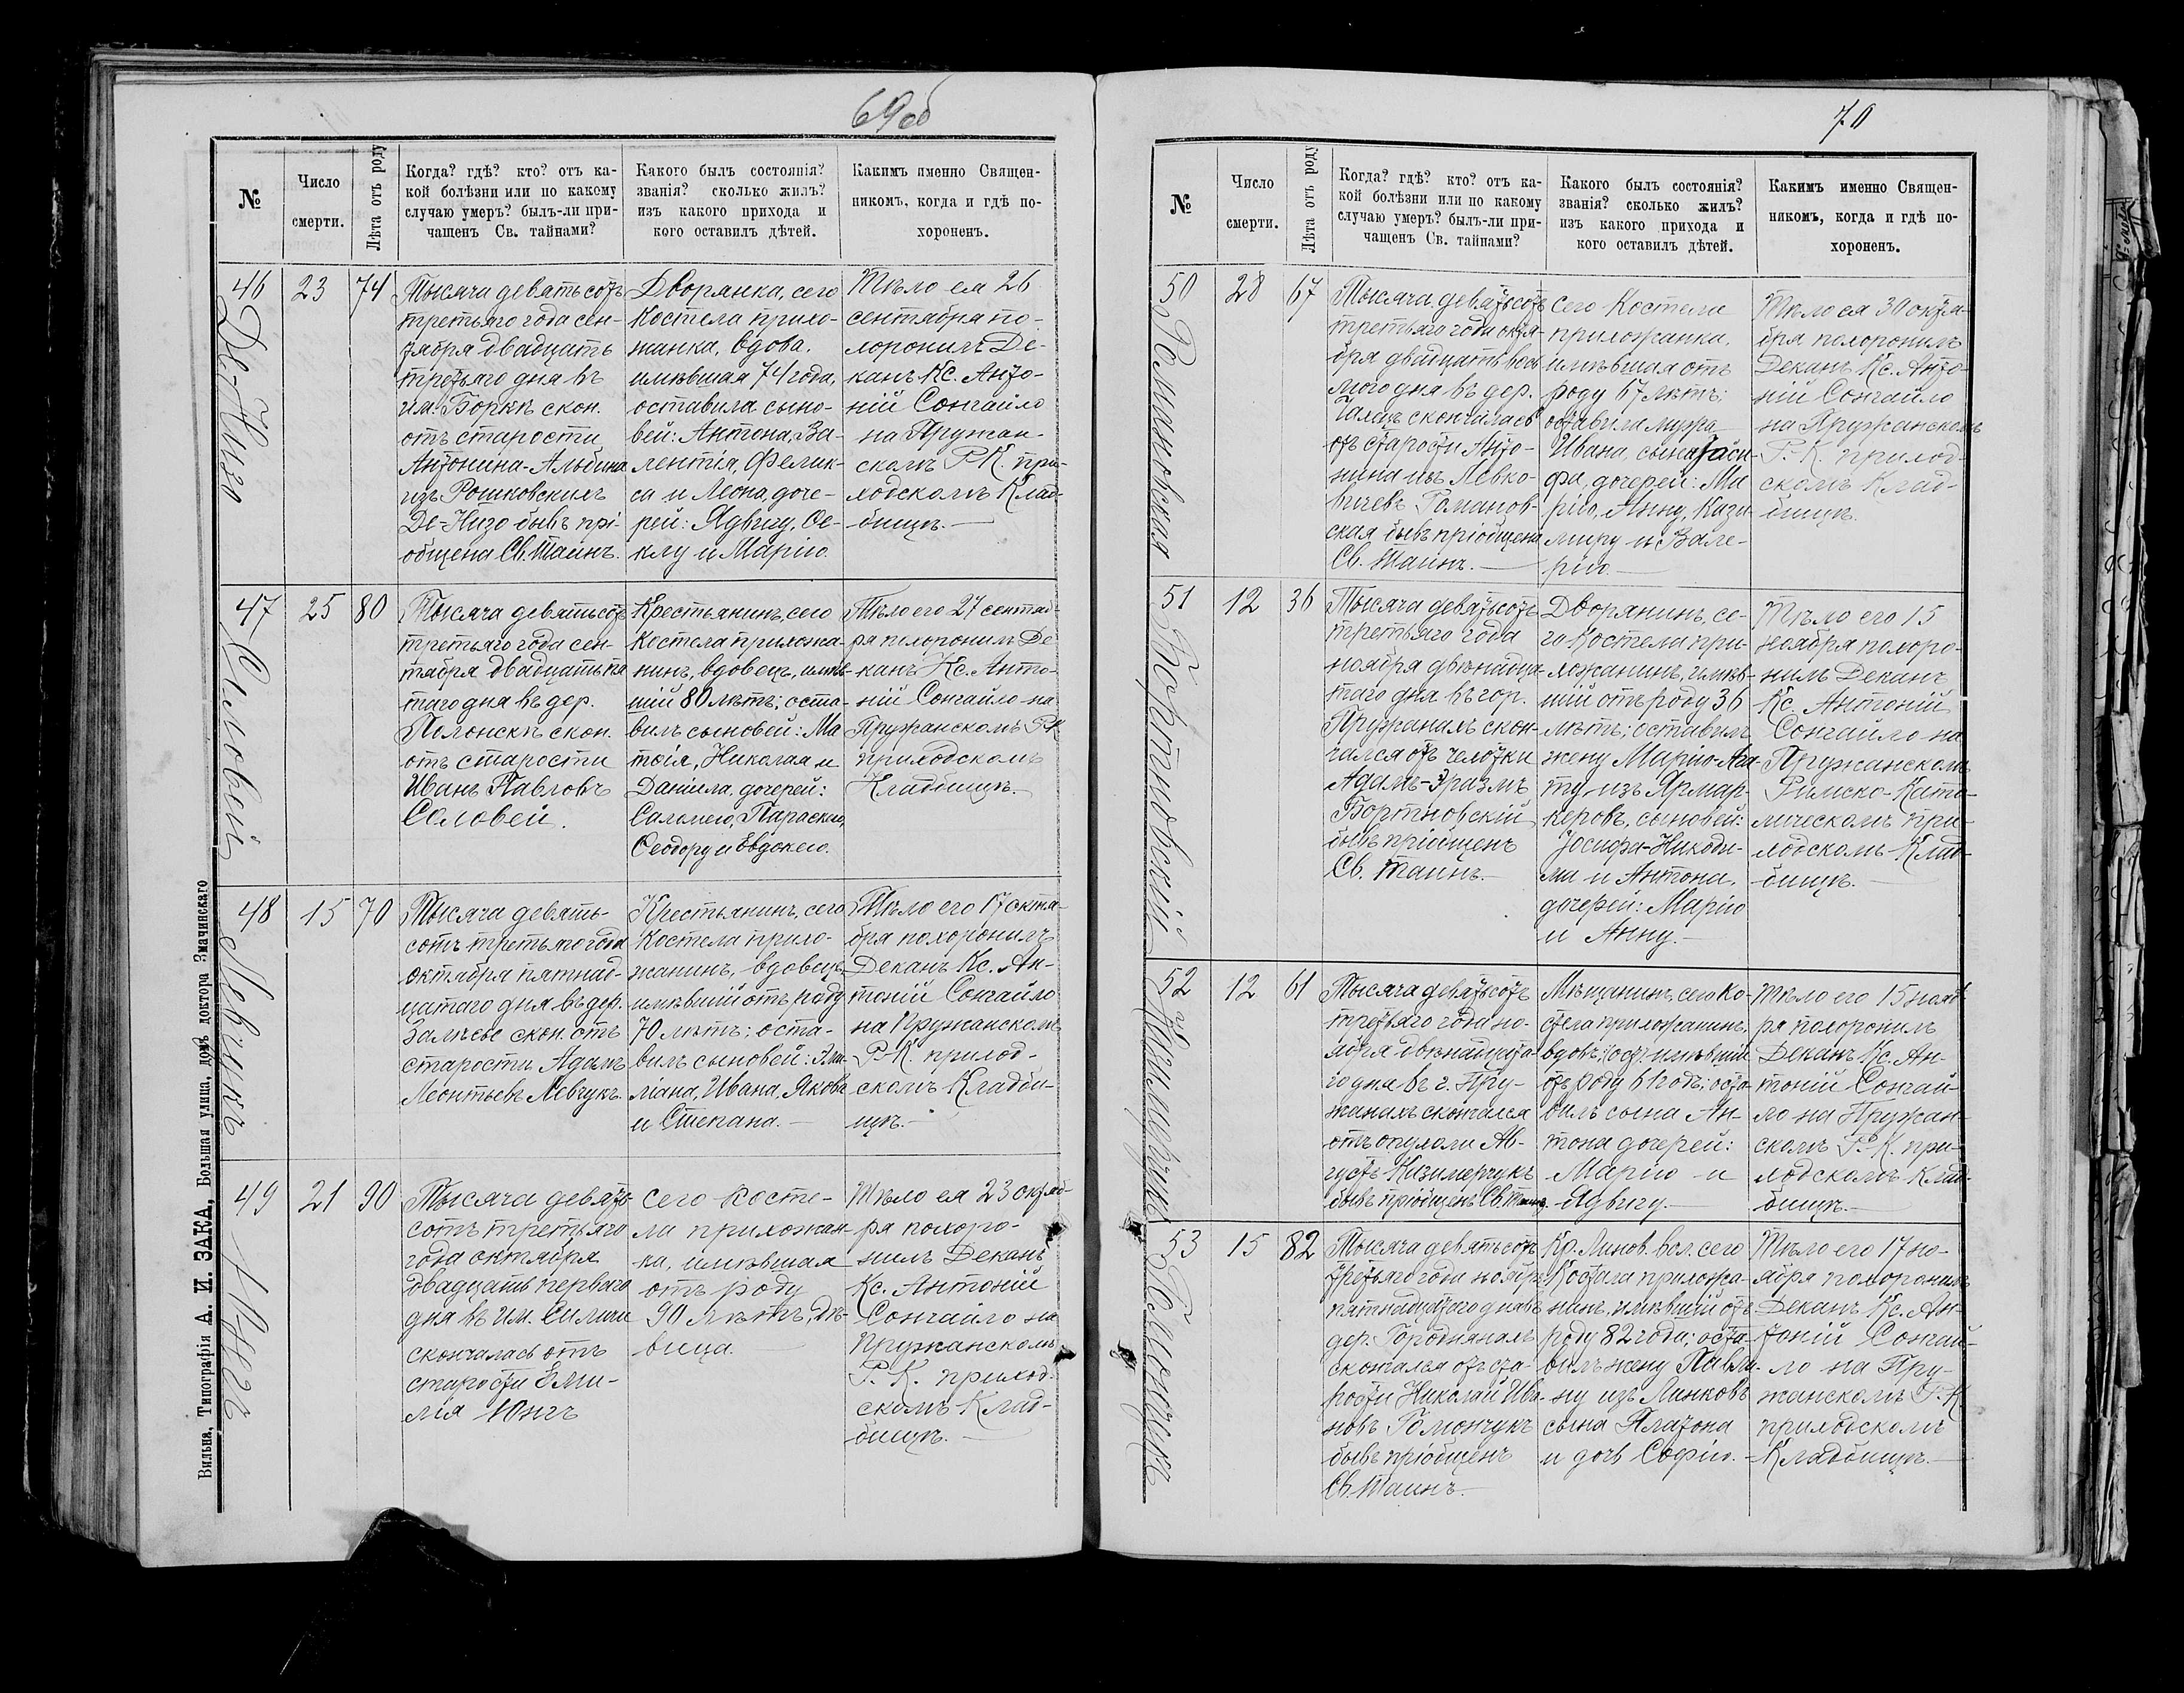 69об
№
Число
смерти.
Лѣта отъ роду
Когда? гдѣ? кто? отъ ка-
кой болѣзни или по какому
случаю умеръ? былъ-ли при-
чащенъ Св. тайнами?
Какого былъ состоянія?
званія? сколько жилъ?
изъ какого прихода и
кого оставилъ дѣтей.
Какимъ именно Священ-
никомъ, когда и гдѣ по-
хороненъ.
46
Де-Низо
23
74
Тысяча девятьсотъ
третьяго года сен-
тября двадцать
третьяго дня въ
им. Боркѣ скон.
отъ старости
Антонина-Альбина
изъ Рошковскихъ
Де-Низо бывъ прі-
общена Св. Таинъ.
Дворянка, сего
костела прихо-
жанка, вдова,
имѣвшая 74 года,
оставила сыно-
вей: Антона, Ва-
лентія, Феликс-
са и Леона, доче-
рей: Ядвигу, Ѳе-
клу и Марію.
Тѣло ея 26
сентября по-
хоронилъ Де-
канъ Кс. Анто-
ній Сонгайло
на Пружан-
скомъ Р-К. при-
ходскомъ Клад-
бищѣ.
47
Соловей
25
80
Тысяча девятьсотъ
третьяго года сен-
тября двадцать пя
таго дня въ дер.
Полонскѣ скон.
отъ старости
Иванъ Павловъ
Соловей.
Крестьянинъ, сего
Костела прихожа-
нинъ, вдовецъ, имѣв-
шій 80 лѣтъ; оста-
вилъ сыновей: Ма
тѳія, Николая и
Даніила, дочерей:
Саломею, Параскею,
Ѳеодору и Евдокею.
Тѣло его 27 сентяб-
ря похоронилъ Де
канъ Кс. Анто-
ній Сонгайло на
Пружанскомъ Р-К
приходскомъ
Кладбищѣ.
48
Левчукъ
15
70
Тысяча девять-
сотъ третьяго года
октября пятнад-
цатаго дня въ дер.
скон. отъ
старости Адамъ
Леонтьевъ Левчукъ.
Крестьянинъ, сего
Костела прихо-
жанинъ, вдовецъ,
имѣвшій отъ роду
70 лѣтъ; оста-
вилъ сыновей:
Ивана, Якова
и Степана.
Тѣло его 17 октя-
бря похоронилъ
Деканъ Кс. Ан-
тоній Сонгайло
на Пружанскомъ
Р-К. приход-
скомъ Кладби-
щѣ.
49
Юнгъ
21
90
Тысяча девять-
сотъ третьяго
года октября
двадцать перваго
дня въ им.
скончалась отъ
старости Эми-
лія Юнгъ
сего косте-
ла прихожан-
ка, имѣвшая
отъ роду
90 лѣтъ, дѣ-
вица.
Тѣло ея 23 октяб-
ря похоро-
нилъ Деканъ
Кс. Антоній
Сонгайло на
Пружанскомъ
Р. К. приход-
скомъ Клад-
бищѣ.
Вильна, Типографія А. И. ЗАКА, Большая улица, домъ доктора Змачинскаго
70
№
Число
смерти.
Лѣта отъ роду
Когда? гдѣ? кто? отъ ка-
кой болѣзни или по какому
случаю умеръ? былъ-ли при-
чащенъ Св. тайнами?
Какого былъ состоянія?
званія? сколько жилъ?
изъ какого прихода и
кого оставилъ дѣтей.
Какимъ именно Священ-
никомъ, когда и гдѣ по-
хороненъ.
50
Романовская
28
67
Тысяча девятьсотъ
третьяго года октя-
бря двадцать вось
мого дня въ дер.
скончалась
отъ старости Анто-
нина изъ Левко-
вичевъ Романов-
ская бывъ пріобщена
Св. Таинъ.
сего Костела
прихожанка,
имѣвшая отъ
роду 67 лѣтъ;
оставила мужа
Ивана, сына Іоси-
фа, дочерей: Ма
рію, Анну, Кази-
миру и Вале-
рію.
Тѣло ея 30 октя-
бря похоронилъ
Деканъ Кс. Анто-
ній Сонгайло
на Пружанскомъ
Р.-К. приход-
скомъ Клад-
бищѣ.
51
Бортновскій
12
36
Тысяча девятьсотъ
третьяго года
ноября двѣнадца-
таго дня въ гор.
Пружанахъ скон-
чался отъ чахотки
Адамъ-Эразмъ
Бортновскій
бывъ пріобщенъ
Св. Таинъ.
Дворянинъ, се-
го Костела при-
хожанинъ, имѣв-
шій отъ роду 36
лѣтъ; оставилъ
жену Марію-Ага-
ту изъ Ярмар-
керовъ, сыновей:
Іосифа-Никоди-
ма и Антона,
дочерей: Марію
и Анну.
Тѣло его 15
ноября похоро-
нилъ Деканъ
Кс. Антоній
Сонгайло на
Пружанскомъ
Римско-Като-
лическомъ при-
ходскомъ Клад-
бищѣ.
52
Казимерчукъ
12
61
Тысяча девятьсотъ
третьяго года но-
ября двѣнадцата-
го дня въ г. Пру-
жанахъ скончался
отъ опухоли Ав-
густъ Казимерчукъ
бывъ пріобщенъ Св. Таинъ.
Мѣщанинъ, сего Ко-
стела прихожанинъ,
имѣвшій
отъ роду 61 годъ; оста-
вилъ сына Ан-
тона дочерей:
Марію и
Ядвигу.
Тѣло его 15 нояб-
ря похоронилъ
Деканъ Кс. Ан-
тоній Сонгай-
ло на Пружан-
скомъ Р. К. при-
ходскомъ Клад-
бищѣ.
53
Гомончукъ
15
82
Тысяча девятьсотъ
третьяго года ноября
пятнадцатаго дня въ
дер. Городнянахъ
скончался отъ ста-
рости Николай Ива-
новъ Гомончукъ
бывъ пріобщенъ
Св. Таинъ.
Кр. Линов. вол. сего
Костела прихожа-
нинъ, имѣвшій отъ
роду 82 года; оста-
вилъ жену Павли-
ну изъ Линковъ
сына Платона
и дочь Софію.
Тѣло его 17 но-
ября похоронилъ
Деканъ Кс. Ан-
тоній Сонгай-
ло на Пру-
жанскомъ Р.-К.
приходскомъ
Кладбищѣ.